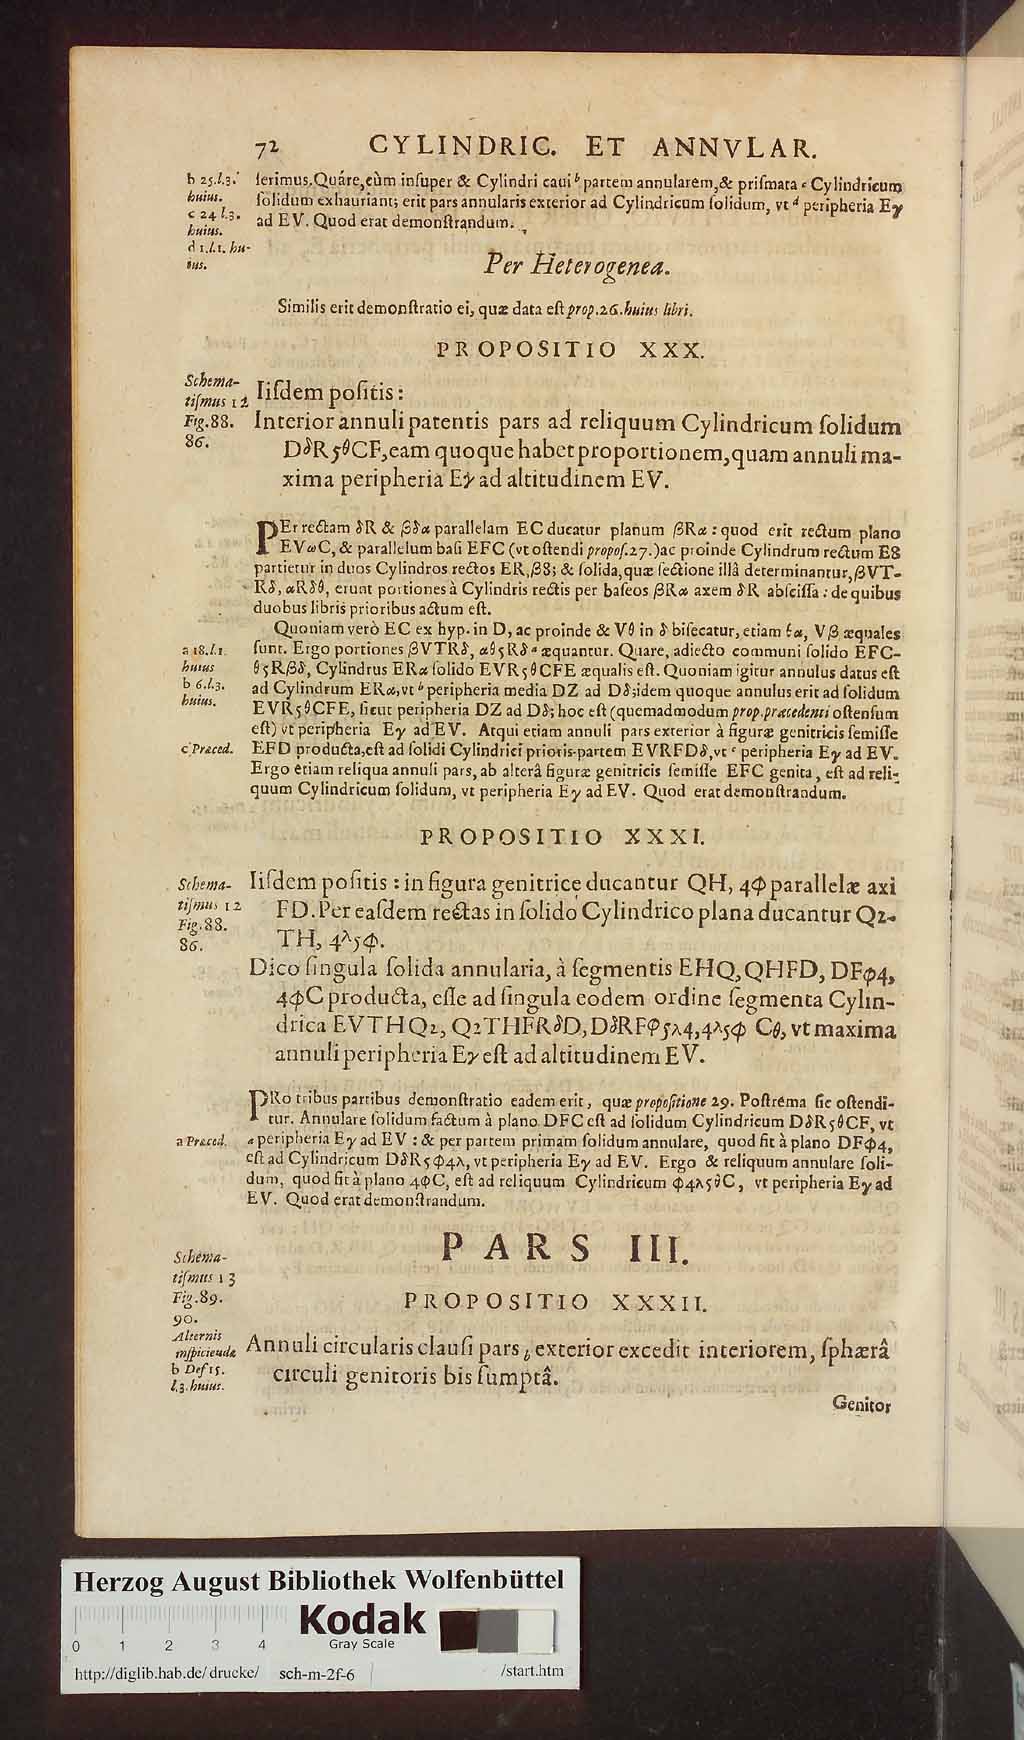 72 CYLINDRIC. ET ANNVLAR.
b 25.l.3.
huius.
c 24 l.3.
huius.
d 1.l.1. hu-
ius.
ſerimus. Quáre, cùm inſuper & Cylindri caui b partem annularem, & priſmata c Cylindricum
ſolidum exhauriant; erit pars annularis exterior ad Cylindricum ſolidum, vt d peripheria Eγ
ad EV. Quod erat demonſtrandum.
Per Heterogenea.
Similis erit demonſtratio ei, quæ data eſt prop. 26. huius libri.
PROPOSITIO XXX.
Schema-
tiſmus 12
Fig. 88.
86.
Iiſdem poſitis:
Interior annuli patentis pars ad reliquum Cylindricum ſolidum
DδR5θCF, eam quoque habet proportionem, quam annuli ma-
xima peripheria Eγ ad altitudinem EV.
PEr rectam δR & βδα parallelam EC ducatur planum βRα: quod erit rectum plano
EVωC, & parallelum baſi EFC (vt oſtendi propoſ. 27.) ac proinde Cylindrum rectum E8
partietur in duos Cylindros rectos ER, β8; & ſolida, quæ ſectione illâ determinantur, βVT-
Rδ, αRδθ, erunt portiones à Cylindris rectis per baſeos βRα axem δR abſciſſa: de quibus
duobus libris prioribus actum eſt.
Quoniam verò EC ex hyp. in D, ac proinde & Vθ in δ biſecatur, etiam θα, Vβ æquales
a 18.l.1.
huius
b 6.l.3.
huius.
ſunt. Ergo portiones βVTRδ, αθ5Rδ a æquantur. Quare, adiecto communi ſolido EFC-
θ5Rβδ, Cylindrus ERα ſolido EVR5θCFE æqualis eſt. Quoniam igitur annulus datus eſt
ad Cylindrum ERα, vt b peripheria media DZ ad Dδ; idem quoque annulus erit ad ſolidum
EVR5θCFE, ſicut peripheria DZ ad Dδ; hoc eſt (quemadmodum prop. præcedenti oſtenſum
eſt) vt peripheria Eγ ad EV. Atqui etiam annuli pars exterior à figuræ genitricis ſemiſſe
c Præced.
EFD producta, eſt ad ſolidi Cylindrici prioris partem EVRFDδ, vt c peripheria Eγ ad EV.
Ergo etiam reliqua annuli pars, ab alterâ figuræ genitricis ſemiſſe EFC genita, eſt ad reli-
quum Cylindricum ſolidum, vt peripheria Eγ ad EV. Quod erat demonſtrandum.
PROPOSITIO XXXI.
Schema-
tiſmus 12
Fig. 88.
86.
Iiſdem poſitis: in figura genitrice ducantur QH, 4Φ parallelæ axi
FD. Per eaſdem rectas in ſolido Cylindrico plana ducantur Q2-
TH, 4λ5Φ.
Dico ſingula ſolida annularia, à ſegmentis EHQ, QHFD, DFΦ4,
4ΦC producta, eſſe ad ſingula eodem ordine ſegmenta Cylin-
drica EVTHQ2, Q2THFRδD, DδRFΦ5λ4, 4λ5Φ Cθ, vt maxima
annuli peripheria Eγ eſt ad altitudinem EV.
PRo tribus partibus demonſtratio eadem erit, quæ propoſitione 29. Poſtrema ſic oſtendi-
tur. Annulare ſolidum factum à plano DFC eſt ad ſolidum Cylindricum DδR5θCF, vt
a Præced.
a peripheria Eγ ad EV: & per partem primam ſolidum annulare, quod fit à plano DFΦ4,
eſt ad Cylindricum DδR5Φ4λ, vt peripheria Eγ ad EV. Ergo & reliquum annulare ſoli-
dum, quod fit à plano 4ΦC, eſt ad reliquum Cylindricum Φ4λ5θC, vt peripheria Eγ ad
EV. Quod erat demonſtrandum.
PARS III.
Schema-
tiſmus 13
Fig. 89.
90.
Alternis
inſpicienda
b Def 15.
l.3. huius.
PROPOSITIO XXXII.
Annuli circularis clauſi pars b exterior excedit interiorem, ſphærâ
circuli genitoris bis ſumptâ.
Genitor
Herzog August Bibliothek Wolfenbüttel
0 1 2 3 4
Kodak
Gray Scale
http://diglib.hab.de/drucke/ sch-m-2f-6 /start.htm